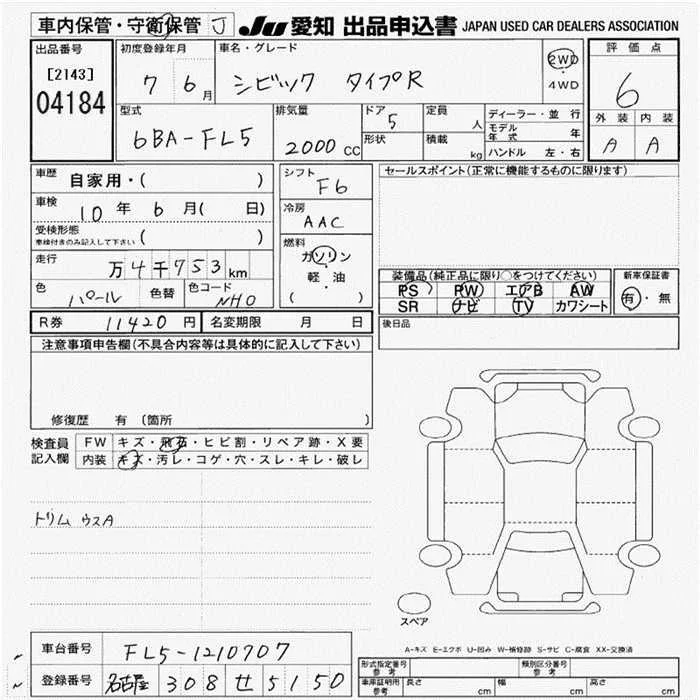 車内保管・守衛保管 J JU 愛知 出品申込書 JAPAN USED CAR DEALERS ASSOCIATION
出品番号 初度登録年月 車名・グレード 評価点
[2143] 7 6月 シビック タイプR 2WD 6
04184 4WD
外装 内装
型式 排気量 ドア 5 定員 人 ディーラー・並行 A A
6BA-FL5 2000 CC 形状 積載 kg モデル年式 年
ハンドル 左・右
車歴 自家用・( ) シフト F6 セールスポイント(正常に機能するものに限ります)
車検 10年 6月( 日) 冷房 AAC
受検形態 車検付きのみ記入して下さい ( )
燃料 ガソリン 軽・油 ( )
走行 万4千753km 装備品(純正品に限り○をつけてください) 新車保証書
色 パール 色替 色コード NH0 PS PW エアB AW 有・無
SR ナビ TV カワシート
R券 11420円 名変期限 月 日 後日品
注意事項申告欄(不具合内容等は具体的に記入して下さい)
修復歴 有 (箇所 )
検査員記入欄 FW キズ・飛石・ヒビ割・リペア跡・X要
内装 キズ・汚レ・コゲ・穴・スレ・キレ・破レ
トリム ウスA
スペア
A-キズ E-エクボ U-凹み W-補修跡 S-サビ C-腐食 XX-交換済
車台番号 FL5-1210707 形式指定番号 参考 類別区分番号 参考
登録番号 名古屋 308 せ 5150 車庫証明用 参考 長さ cm 幅 cm 高さ cm